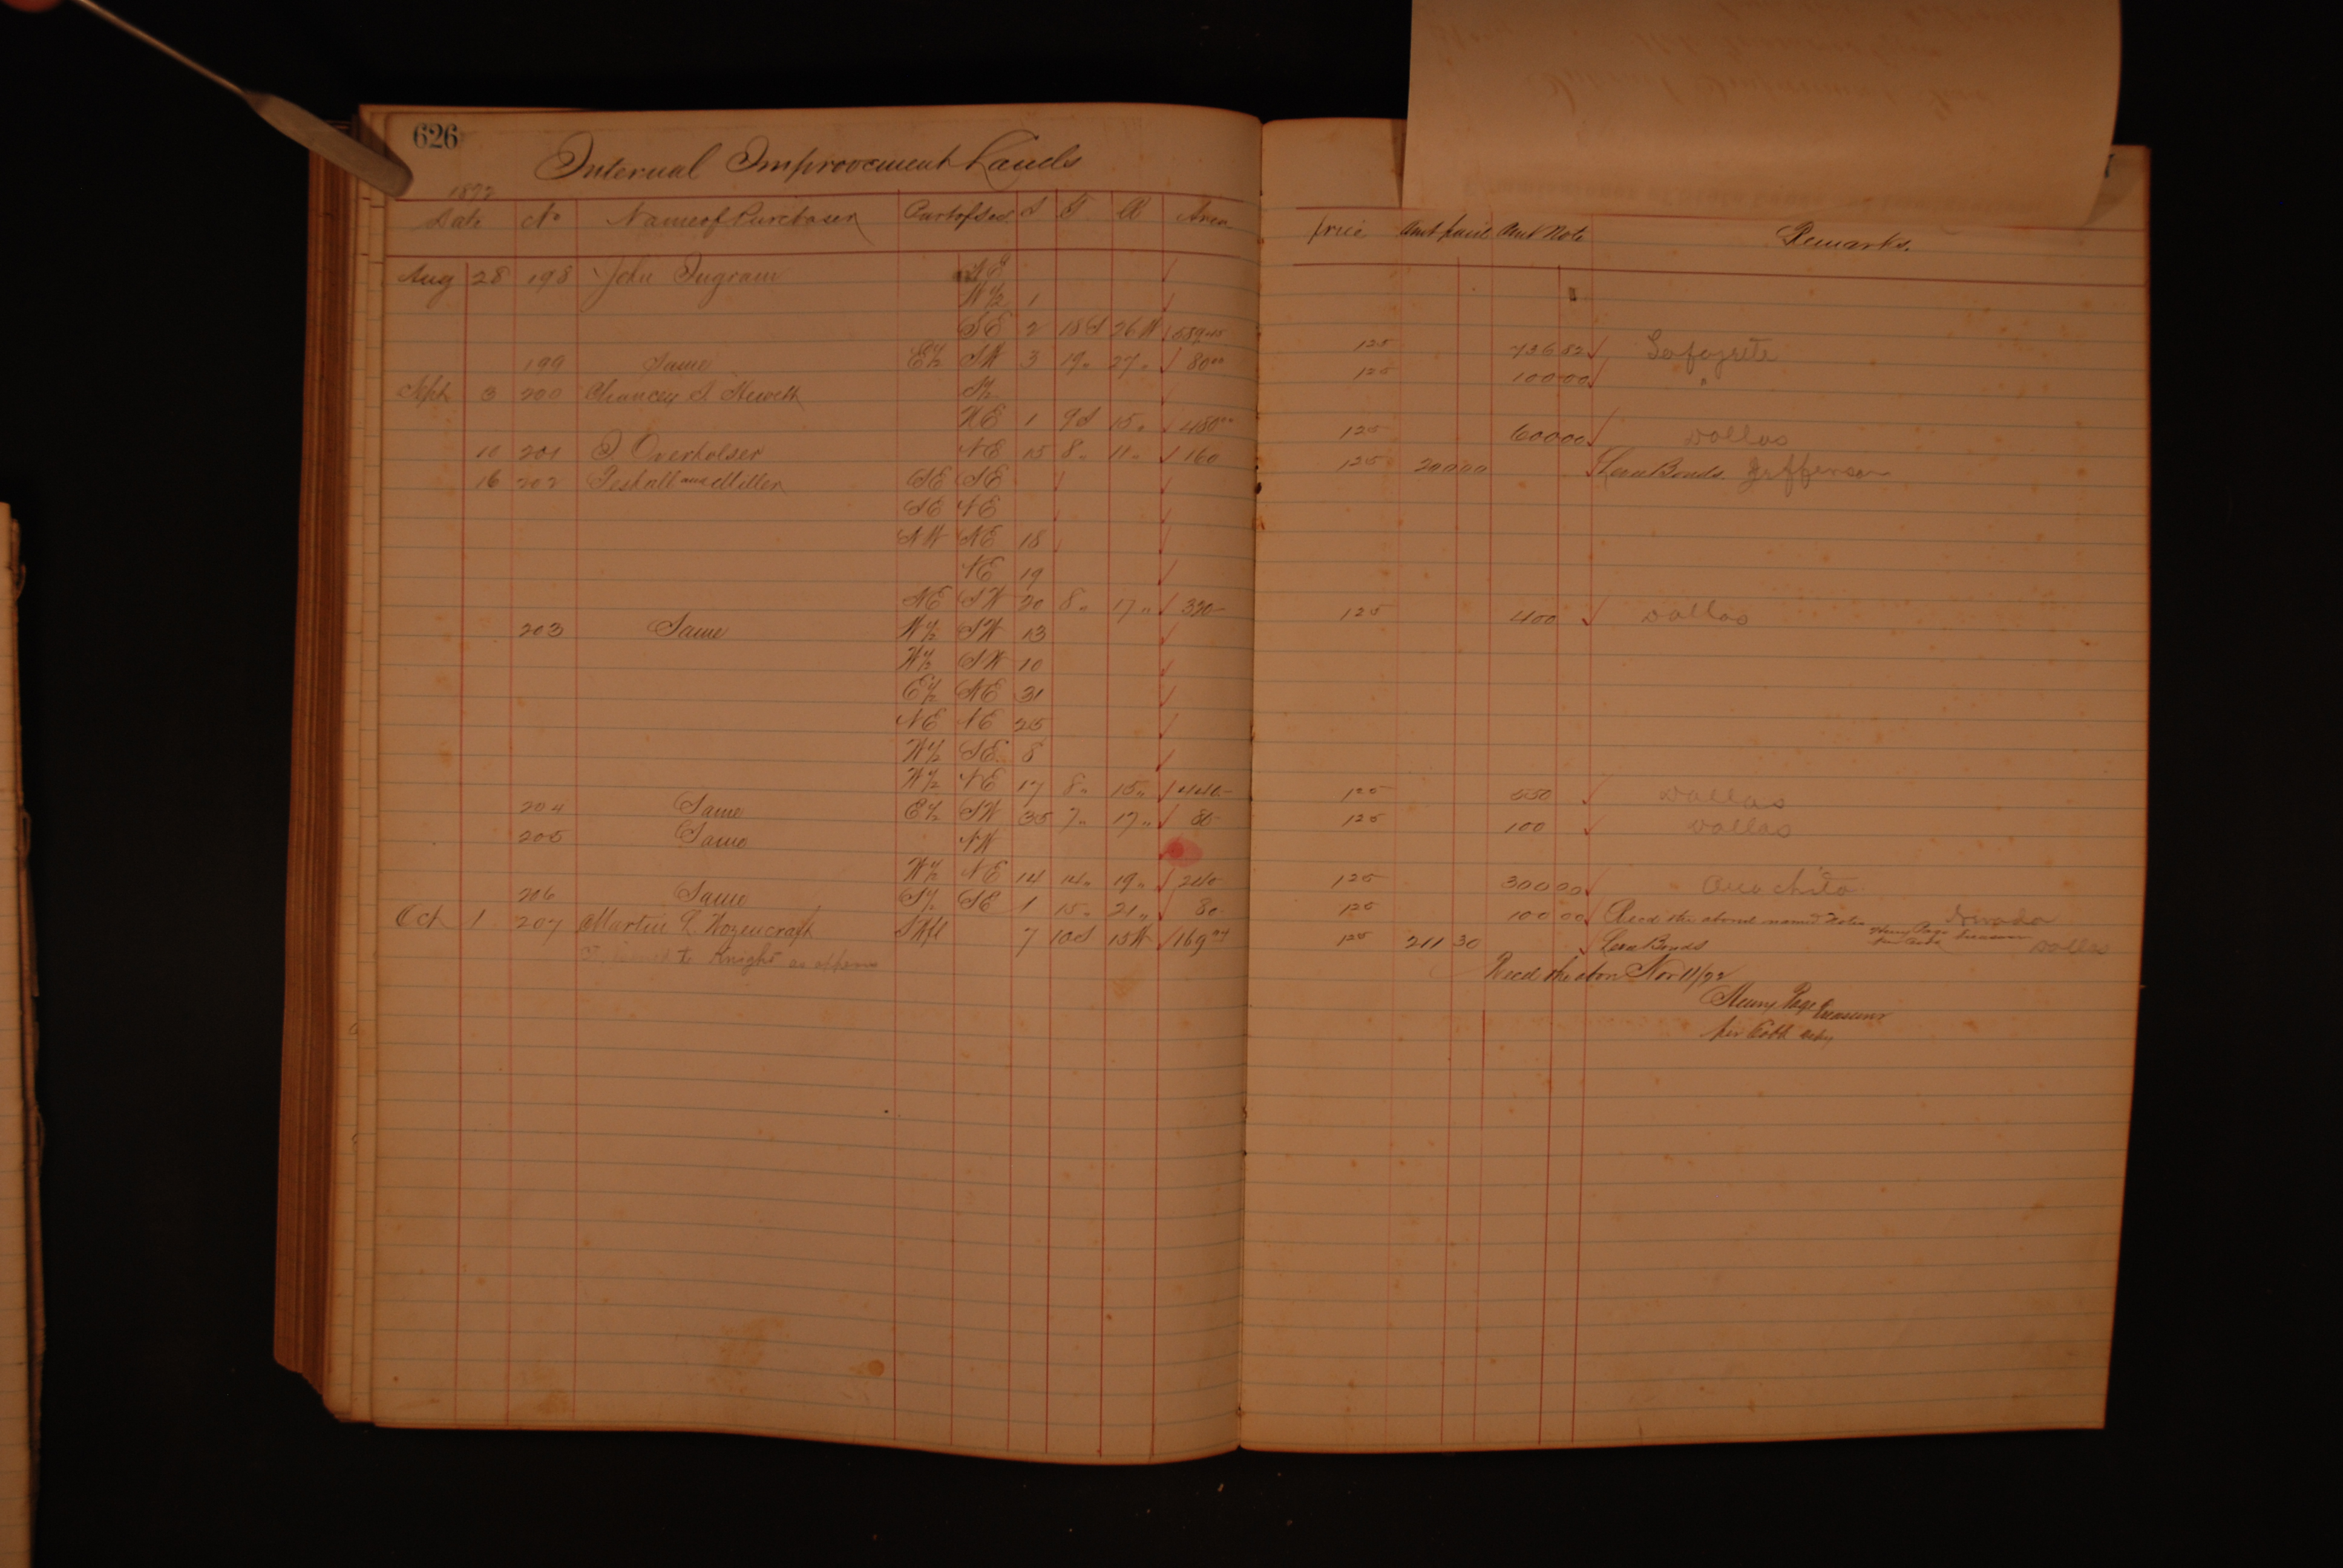 626
Internal Improvement Lands
1872
Date No Name of Purchaser Part of Sec. S T. R Area price Amt paid Amt Note Remarks.
Aug 28 198 John Ingram NE
W½ 1
SE 2 18S 26W 589 45 125 736 82 Lafayette
199 Same E½ SW 3 19" 27" 80 00 125 100 00 "
Sept 3 200 Chancey S Hewett S½
NE 1 9S 15" 480 00 125 600 00 Dallas
10 201 Overholser NE 15 8" 11" 160 125 200 00 Levee Bonds. Jefferson
16 202 and Miller SE SE
SE NE
NW NE 18
NE 19
NE SW 20 8" 17" 320 125 400 Dallas
203 Same W½ SW 13
W½ SW 10
E½ NE 31
NE NE 25
W½ SE 8
W½ NE 17 8" 15" 440 125 550 Dallas
204 Same E½ SW 35 7" 17" 80 125 100 Dallas
205 Same NW
W½ NE 14 14" 19" 240 125 300 00 Ouachita
206 Same S½ SE 1 15" 21" 80 125 100 00 Recd the above named Notes Henry Page Treasurer Nevada
Oct 1 207 Martin L Wozencraft 7 10S 15W 169 04 125 211 30 Levee Bonds Dallas
to Knight as
Recd the above Nov 11/72
Henry Page Treasurer
per Cobb